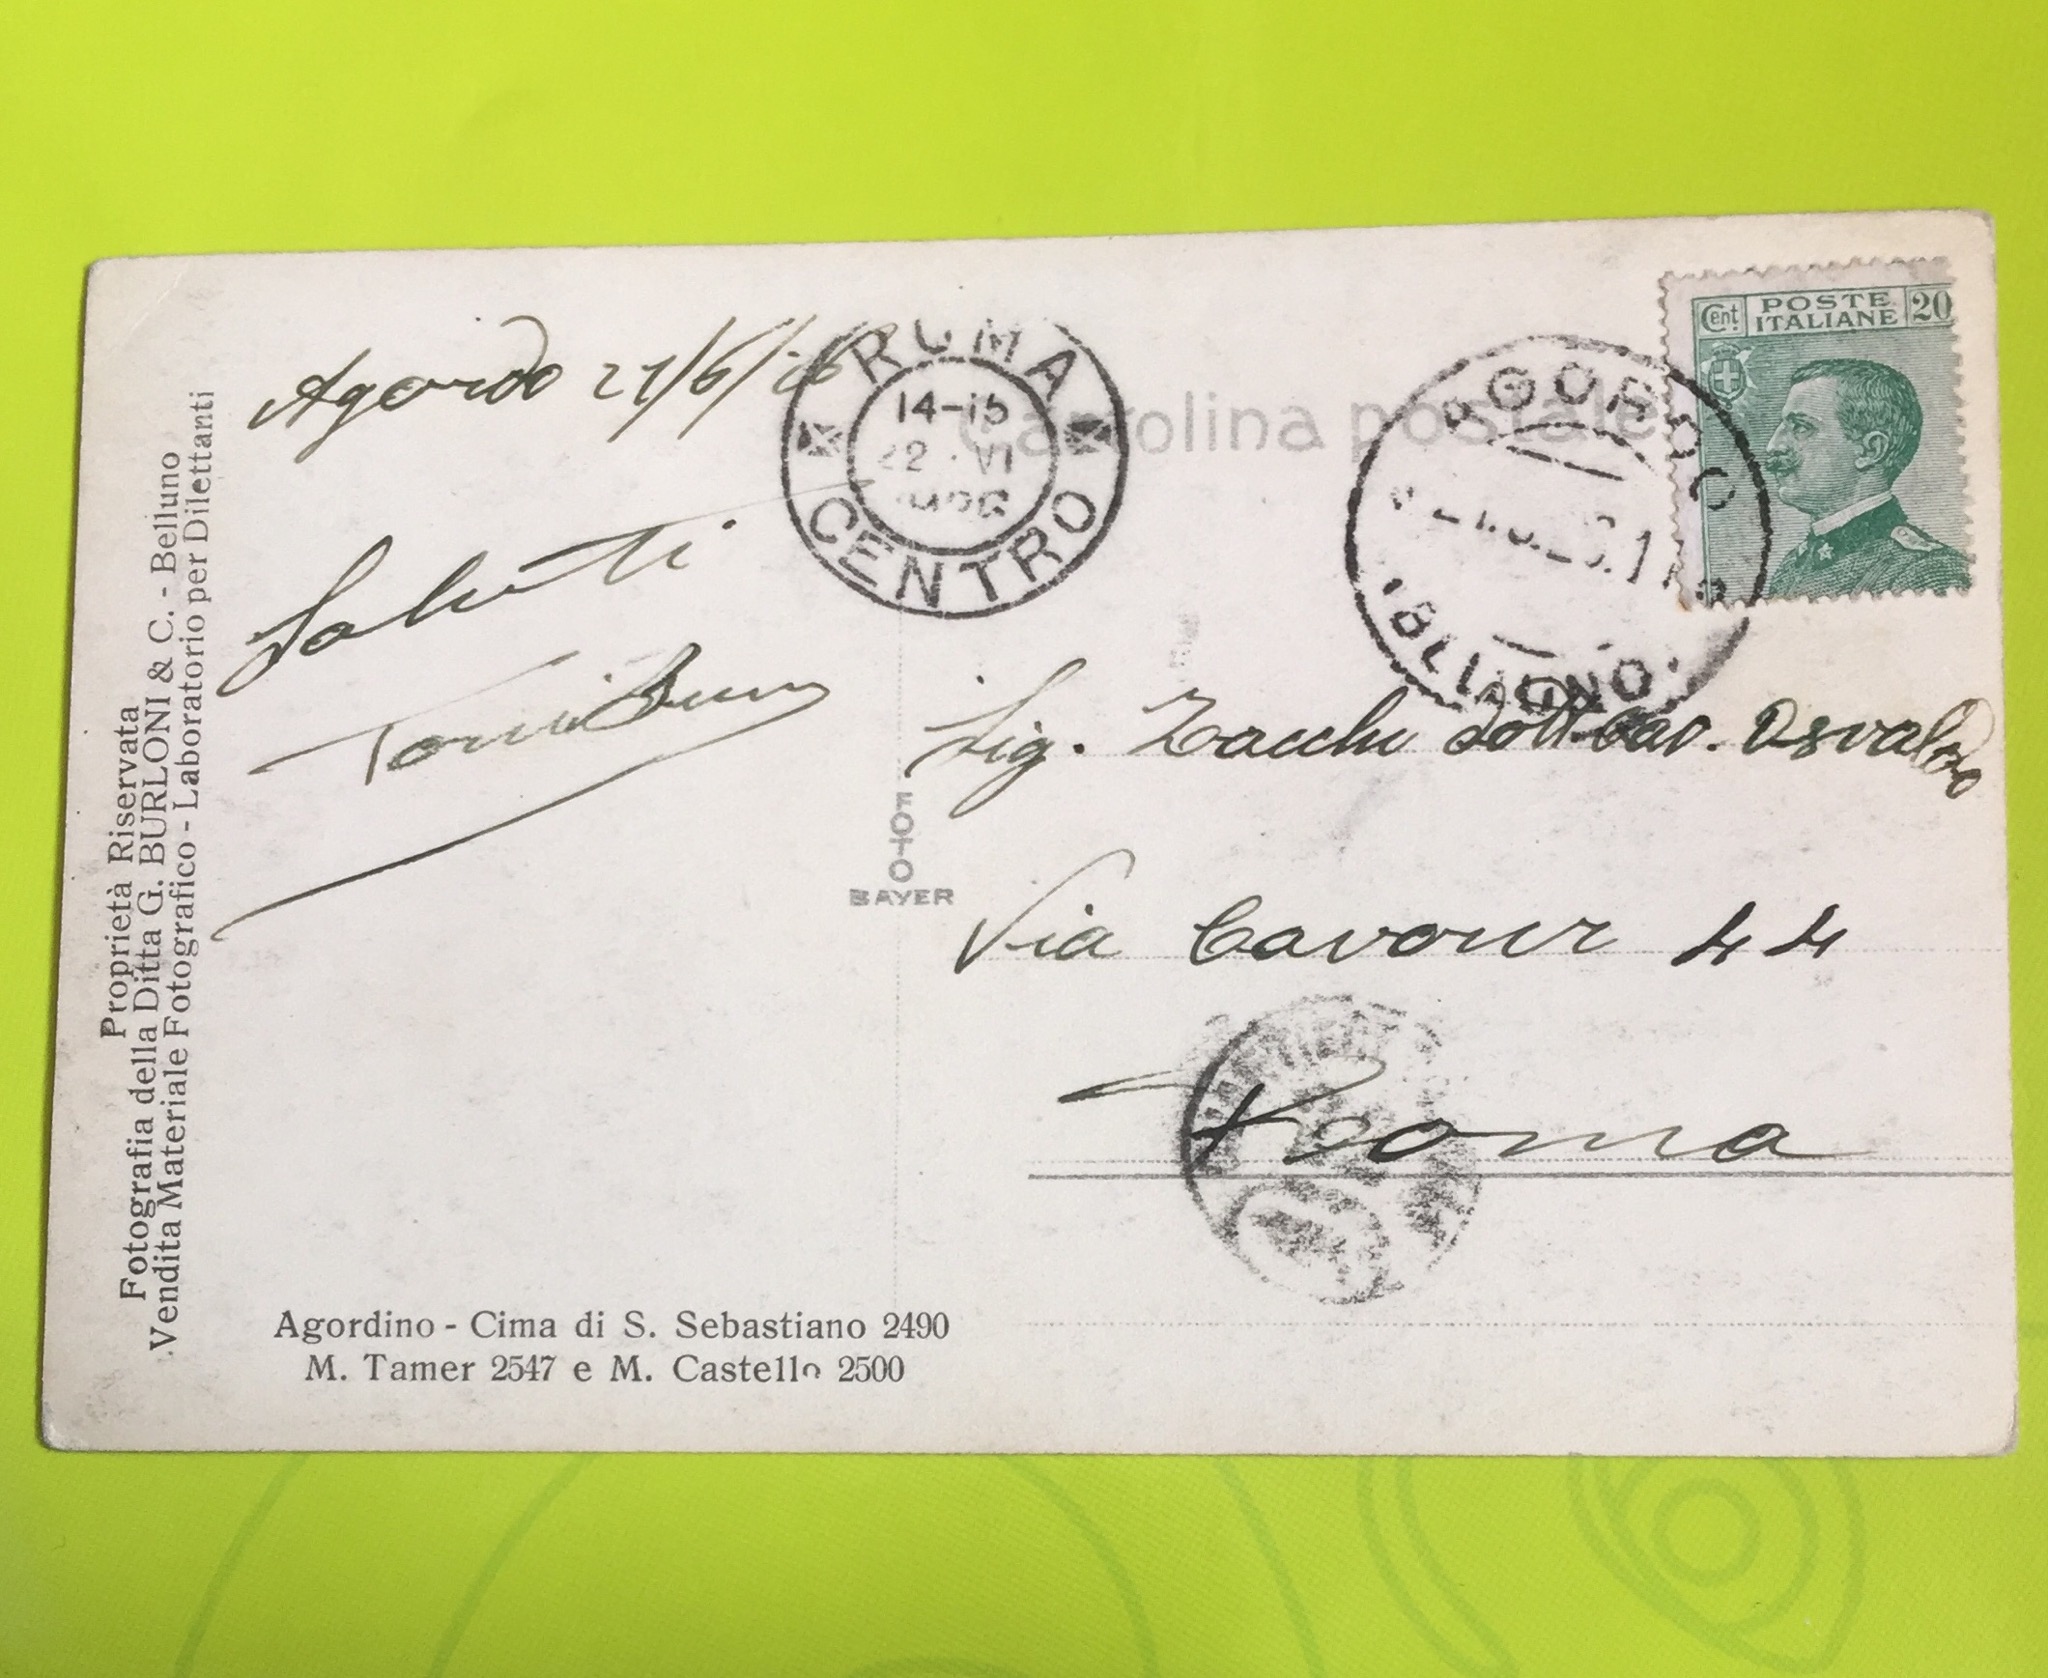 Proprietà Riservata
Fotografia della Ditta G. BURLONI & C. - Belluno
Vendita Materiale Fotografico - Laboratorio per Dilettanti
Agordo 21/6/26
Saluti
ROMA
14-15
22 · VI
CENTRO
Cartolina postale
AGORDO
(BELLUNO)
Cent. POSTE ITALIANE 20
FOTO
BAYER
Sig. Zacchi Dott. Cav. Osvaldo
Via Cavour 44
Roma
Agordino - Cima di S. Sebastiano 2490
M. Tamer 2547 e M. Castello 2500